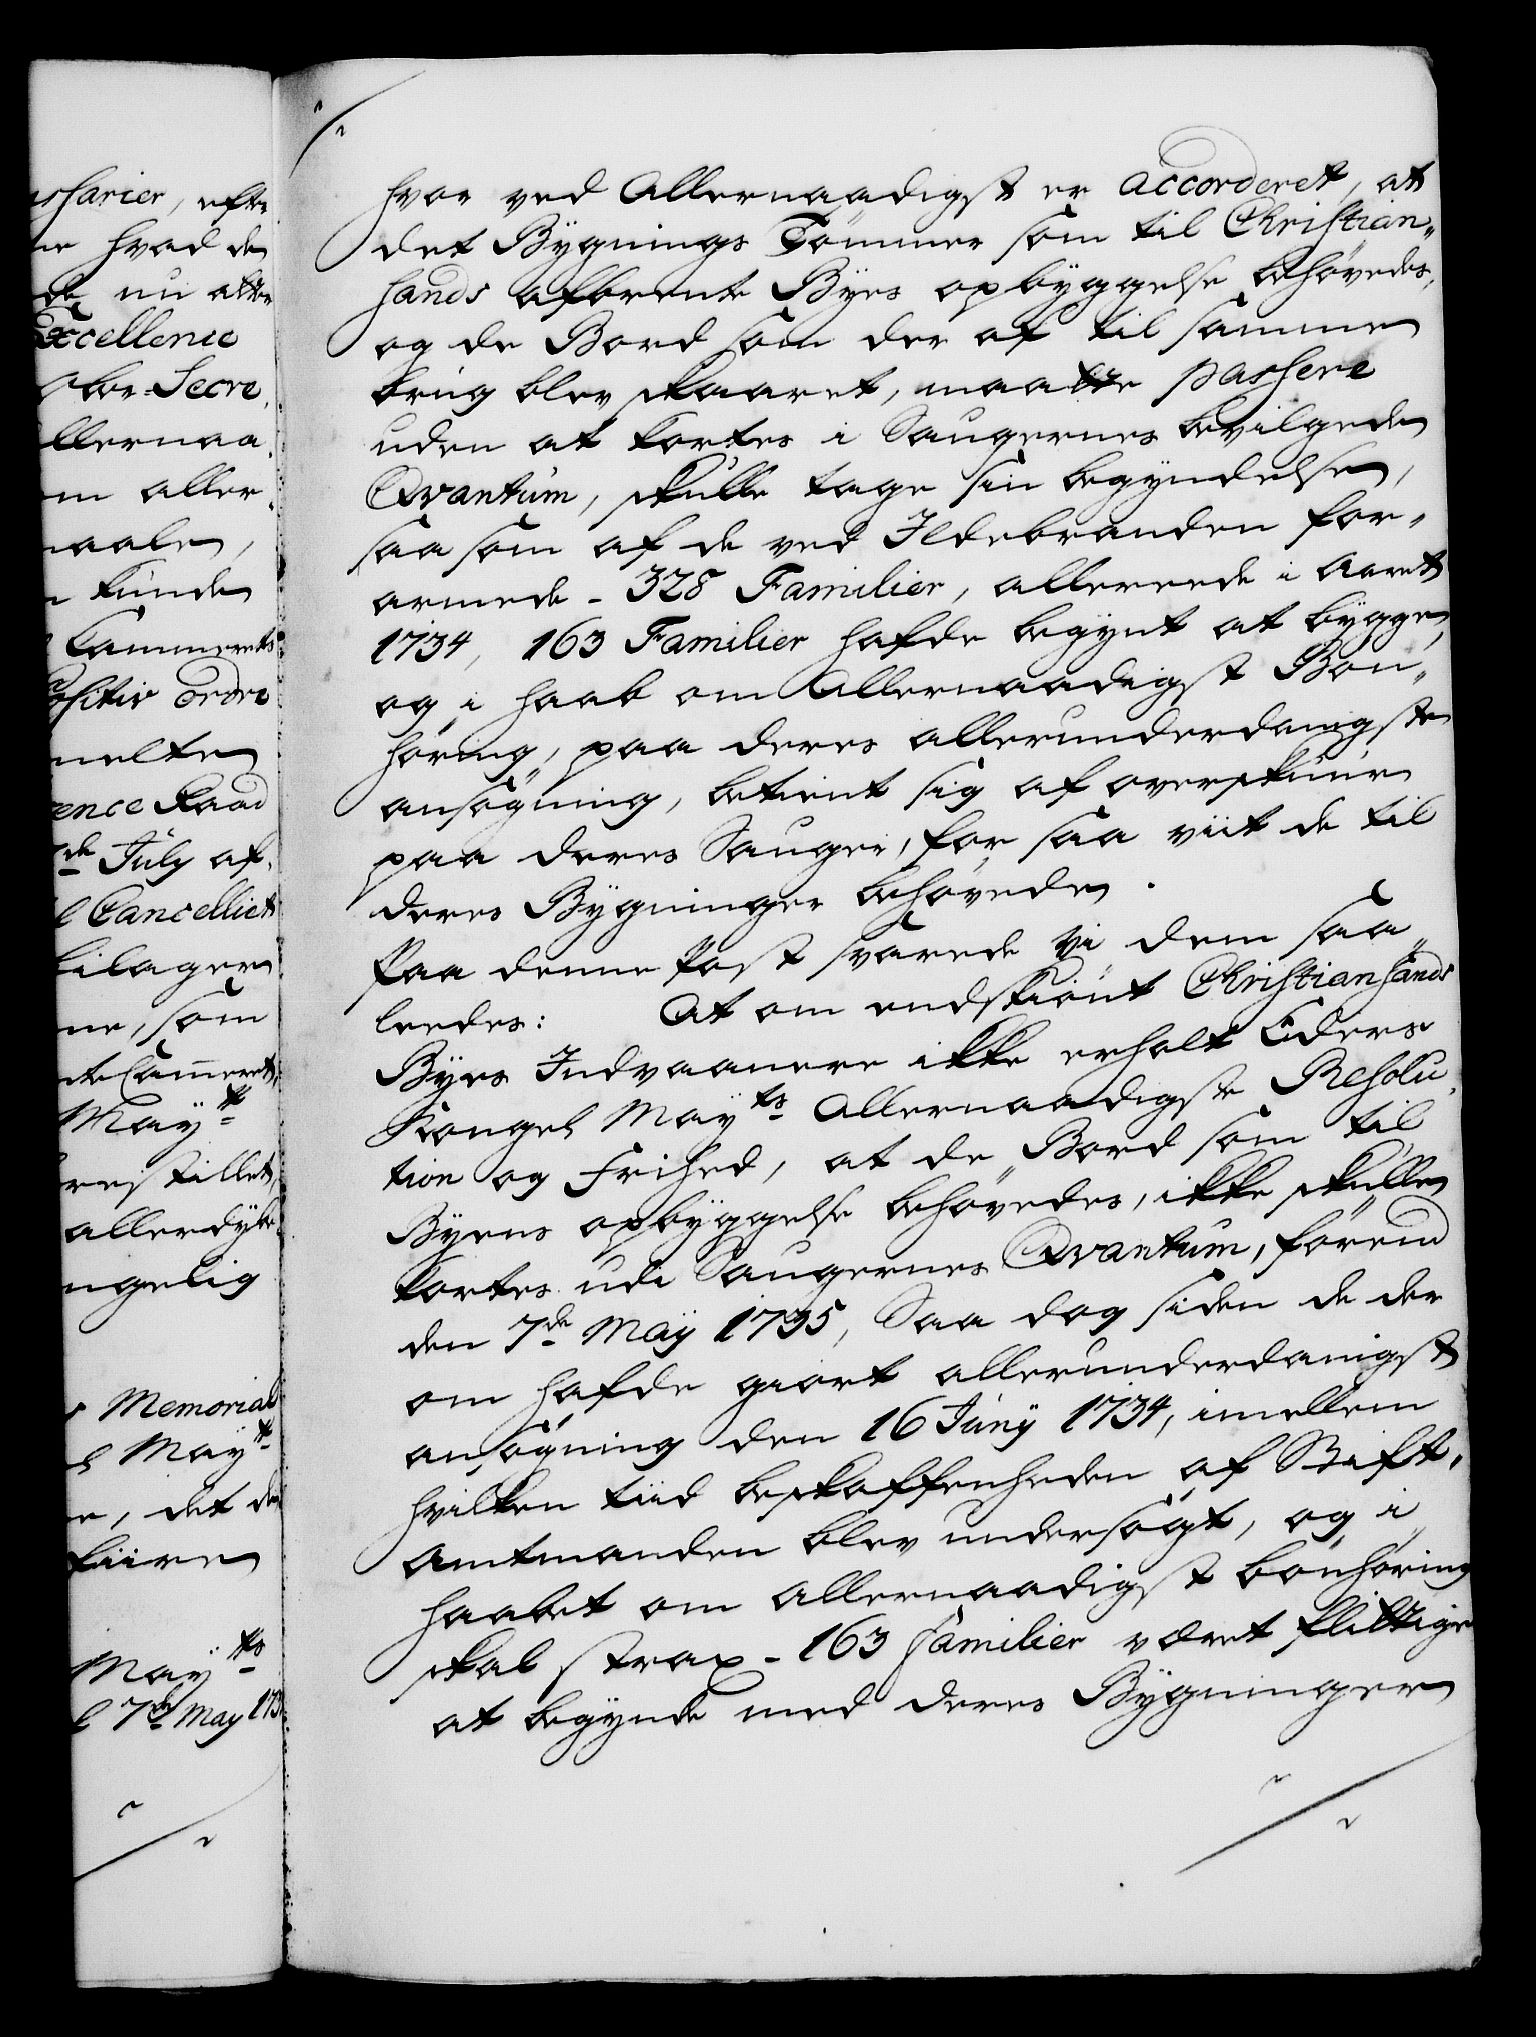 ssarier, efter
ne hvad de
de nu atter
Excellence
Ober-Secre,
llernaa,
om aller,
maalen,
n kunde
Cammerets
positiv ordre
melte
rence Raad
de July af,
l Cancelliets
bilager
ne, som
nte Cam̄erets,
Mayts
restillet,
allerdybe
ngelig
Memorial
s Mayts
e, det de
Mayts
l 7de May 173
hvor ved Allernaadigst er accorderet, at
det Bygnings Tømmer som til Christian„
sands afbrente Byes opbyggelse behøvedes,
og de Bord som der af til samme
brug blev skaaret, maatte passere
uden at kortes i Saugernes bevilgede
Qvantum, skulle tage sin begyndelse,
saa som af de ved Ildebranden for„
armede - 328 Familier, allereede i Aaret
1734, 163 Familier hafde begynt at bygge,
og i haab om Allernaadigst Bøn„
høring, paa deres allerunderdanigste
ansøgning, betient sig af overskuur
paa deres Sauger, for saa viit de til
deres Bygninger behøvede.
Paa denne Post svarede vi dem saa„
leedes: At om endskiønt Christiansands
Byes Indvaanere ikke erholt Eders
Kongel Mayts Allernaadigste Resolu„
tion og Frihed, at de Bord som til
Byens opbyggelse behøvedes, ikke skulle
kortes udi Saugernes Qvantum, førend
den 7de May 1735, Saa dog siden de der
om hafde giort allerunderdanigst
ansøgning den 16 Juny 1734, imellem
hvilken tiid beskaffenheden af Stift„
amtmanden blev undersøgt, og i
haabet om allernaadigst bønhøring
skal strax - 163 Familier været flittige
at begynde med deres Bygninger